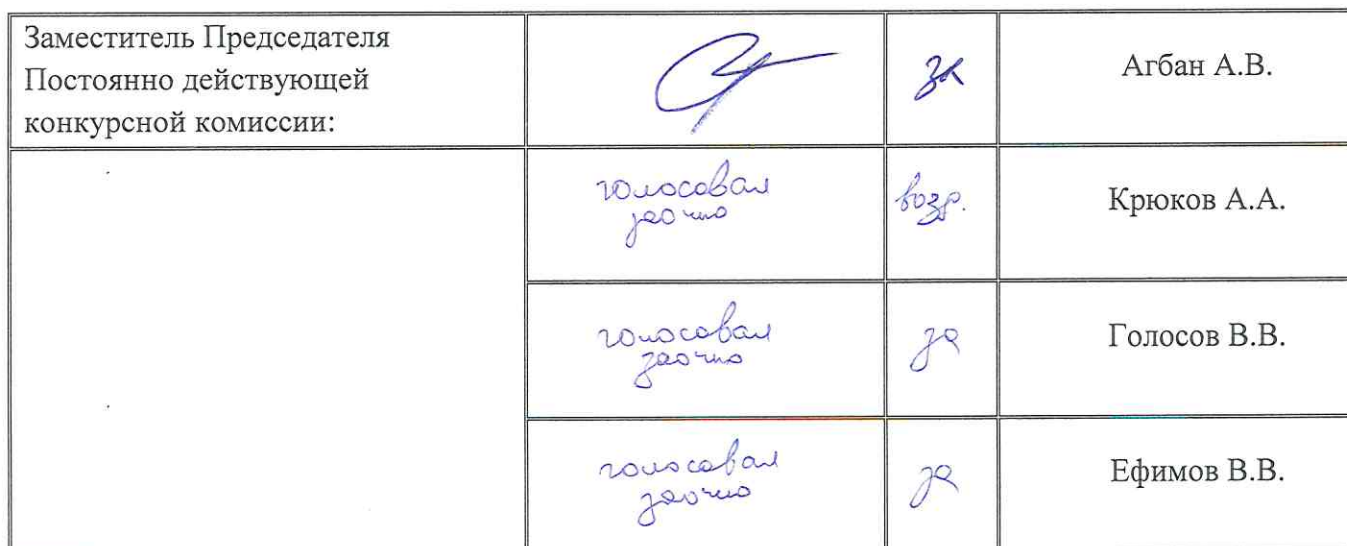 Заместитель Председателя
Постоянно действующей
конкурсной комиссии:
за
Агбан А.В.
голосовал
заочно
возр.
Крюков А.А.
голосовал
заочно
за
Голосов В.В.
голосовал
заочно
за
Ефимов В.В.